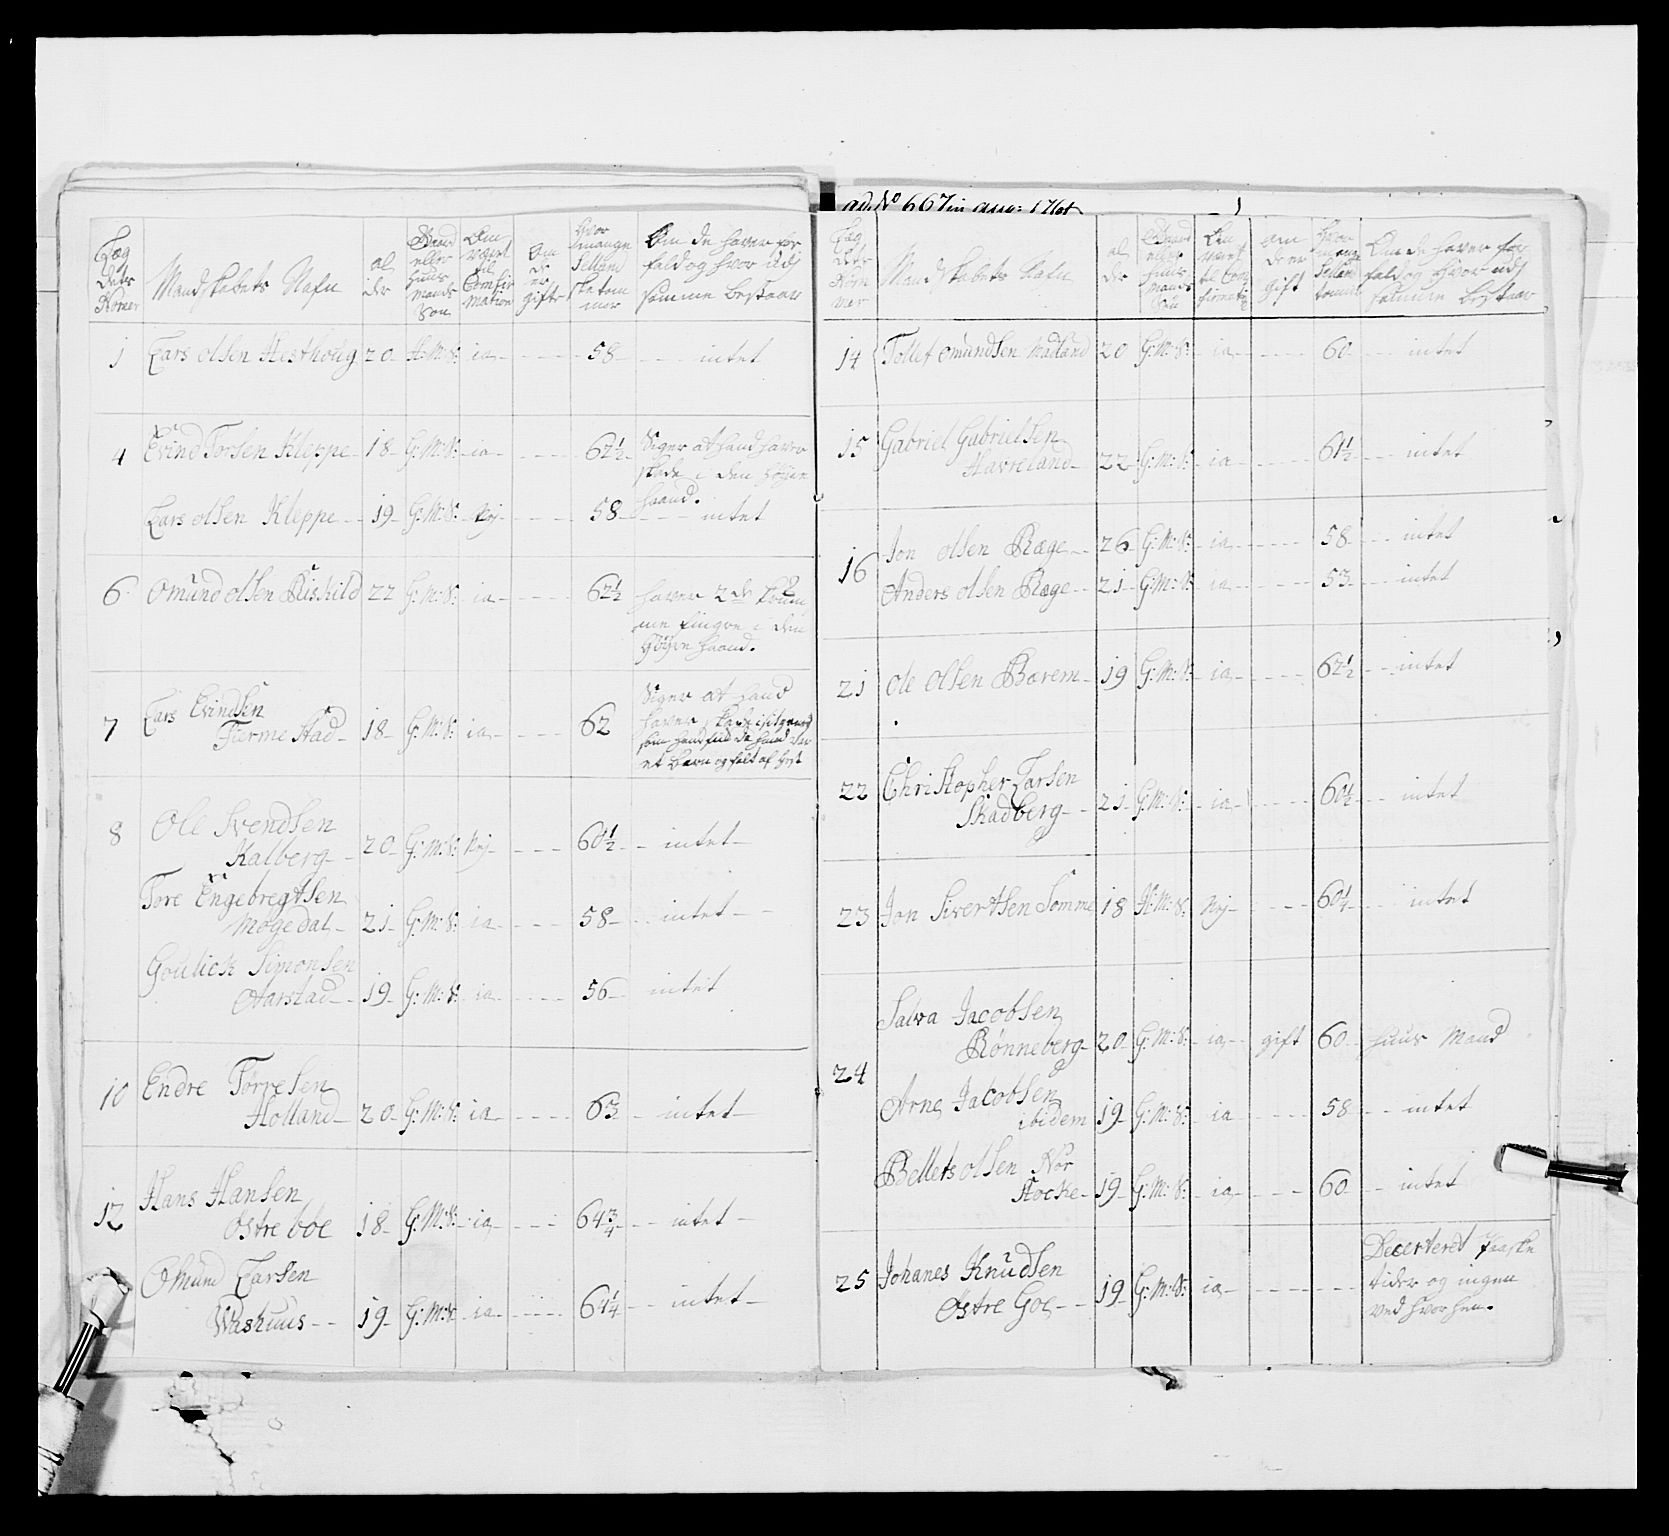 Læg
dets
Nomer
Mandskabets Nafn
al
der
Gaard
eller
huus
mands
Søn
Om
været
til
Confir
mation
Om
de
er
gift
Hvor
mange
Selland
ske tom
mer
Om de haver for
fald og hvor udi
samme bestaar
1 Lars olsen Hesthoug 20 H:M:S: ia 58 intet
4 Evind Torsen Kleppe 18 G:M:S: ia 62½ Siger at hand haver
skade i den høyre
haand.
Lars olsen Kleppe 19 G:M:S: Nej 58 intet
6 Omund olsen Riskild 22 G:M:S: ia 62½ haver 2de
me fingre i den
høyre haand.
7 Lars Evindsen
Tiermestad 18 G:M:S: ia 62 Siger at hand
haver skade
et barn og falt af hest
8 Ole Svendsen
Kalberg 20 G:M:S: Nej 60½ intet
Tore Engebregtsen
Mogedal 21 G:M:S: ia 58 intet
Goulick Simonsen
Aarstad 19 G:M:S: ia 56 intet
10 Endre Tørresen
Holland 20 G:M:S: ia 63 intet
12 Hans Hansen
Østre boe 18 G:M:S: ia 64¾ intet
Omund Larsen
Washuus 19 G:M:S: ia 64¼ intet
ad No 667 in
Læg
dets
Nom
mer
Mandskabets Nafn
al
der
Gaard
eller
huus
mands
Søn
Om
været
til Con
firmation
om
de er
gift
Hvor
mange
Selland
tommer
Om de haver for
fald og hvor udi
samme bestaar
14 Tollef omundsen Madland 20 G:M:S: ia 60 intet
15 Gabriel Gabrielsen
Havreland 22 G:M:S: ia 61½ intet
16 Jon olsen Ræge 26 G:M:S: ia 58 intet
Anders olsen Ræge 21 G:M:S: ia 53 intet
21 ole olsen Bærem 19 G:M:S: ia 62½ intet
22 Christopher Larsen
Skadberg 21 G:M:S: ia 60½ intet
23 Jon Sivertsen Somme 18 H:M:S: Nej 60¼ intet
24 Salva Jacobsen
Rønneberg 20 G:M:S: ia gift 60 huus Mand
Arne Jacobsen
ibidem 19 G:M:S: ia 58 intet
olsen Nor
19 G:M:S: ia 60 intet
25 Johanes Knudsen
Østre Goe 19 G:M:S: ia Decerteret Paaske
tider og ingen
ved hvor hen.